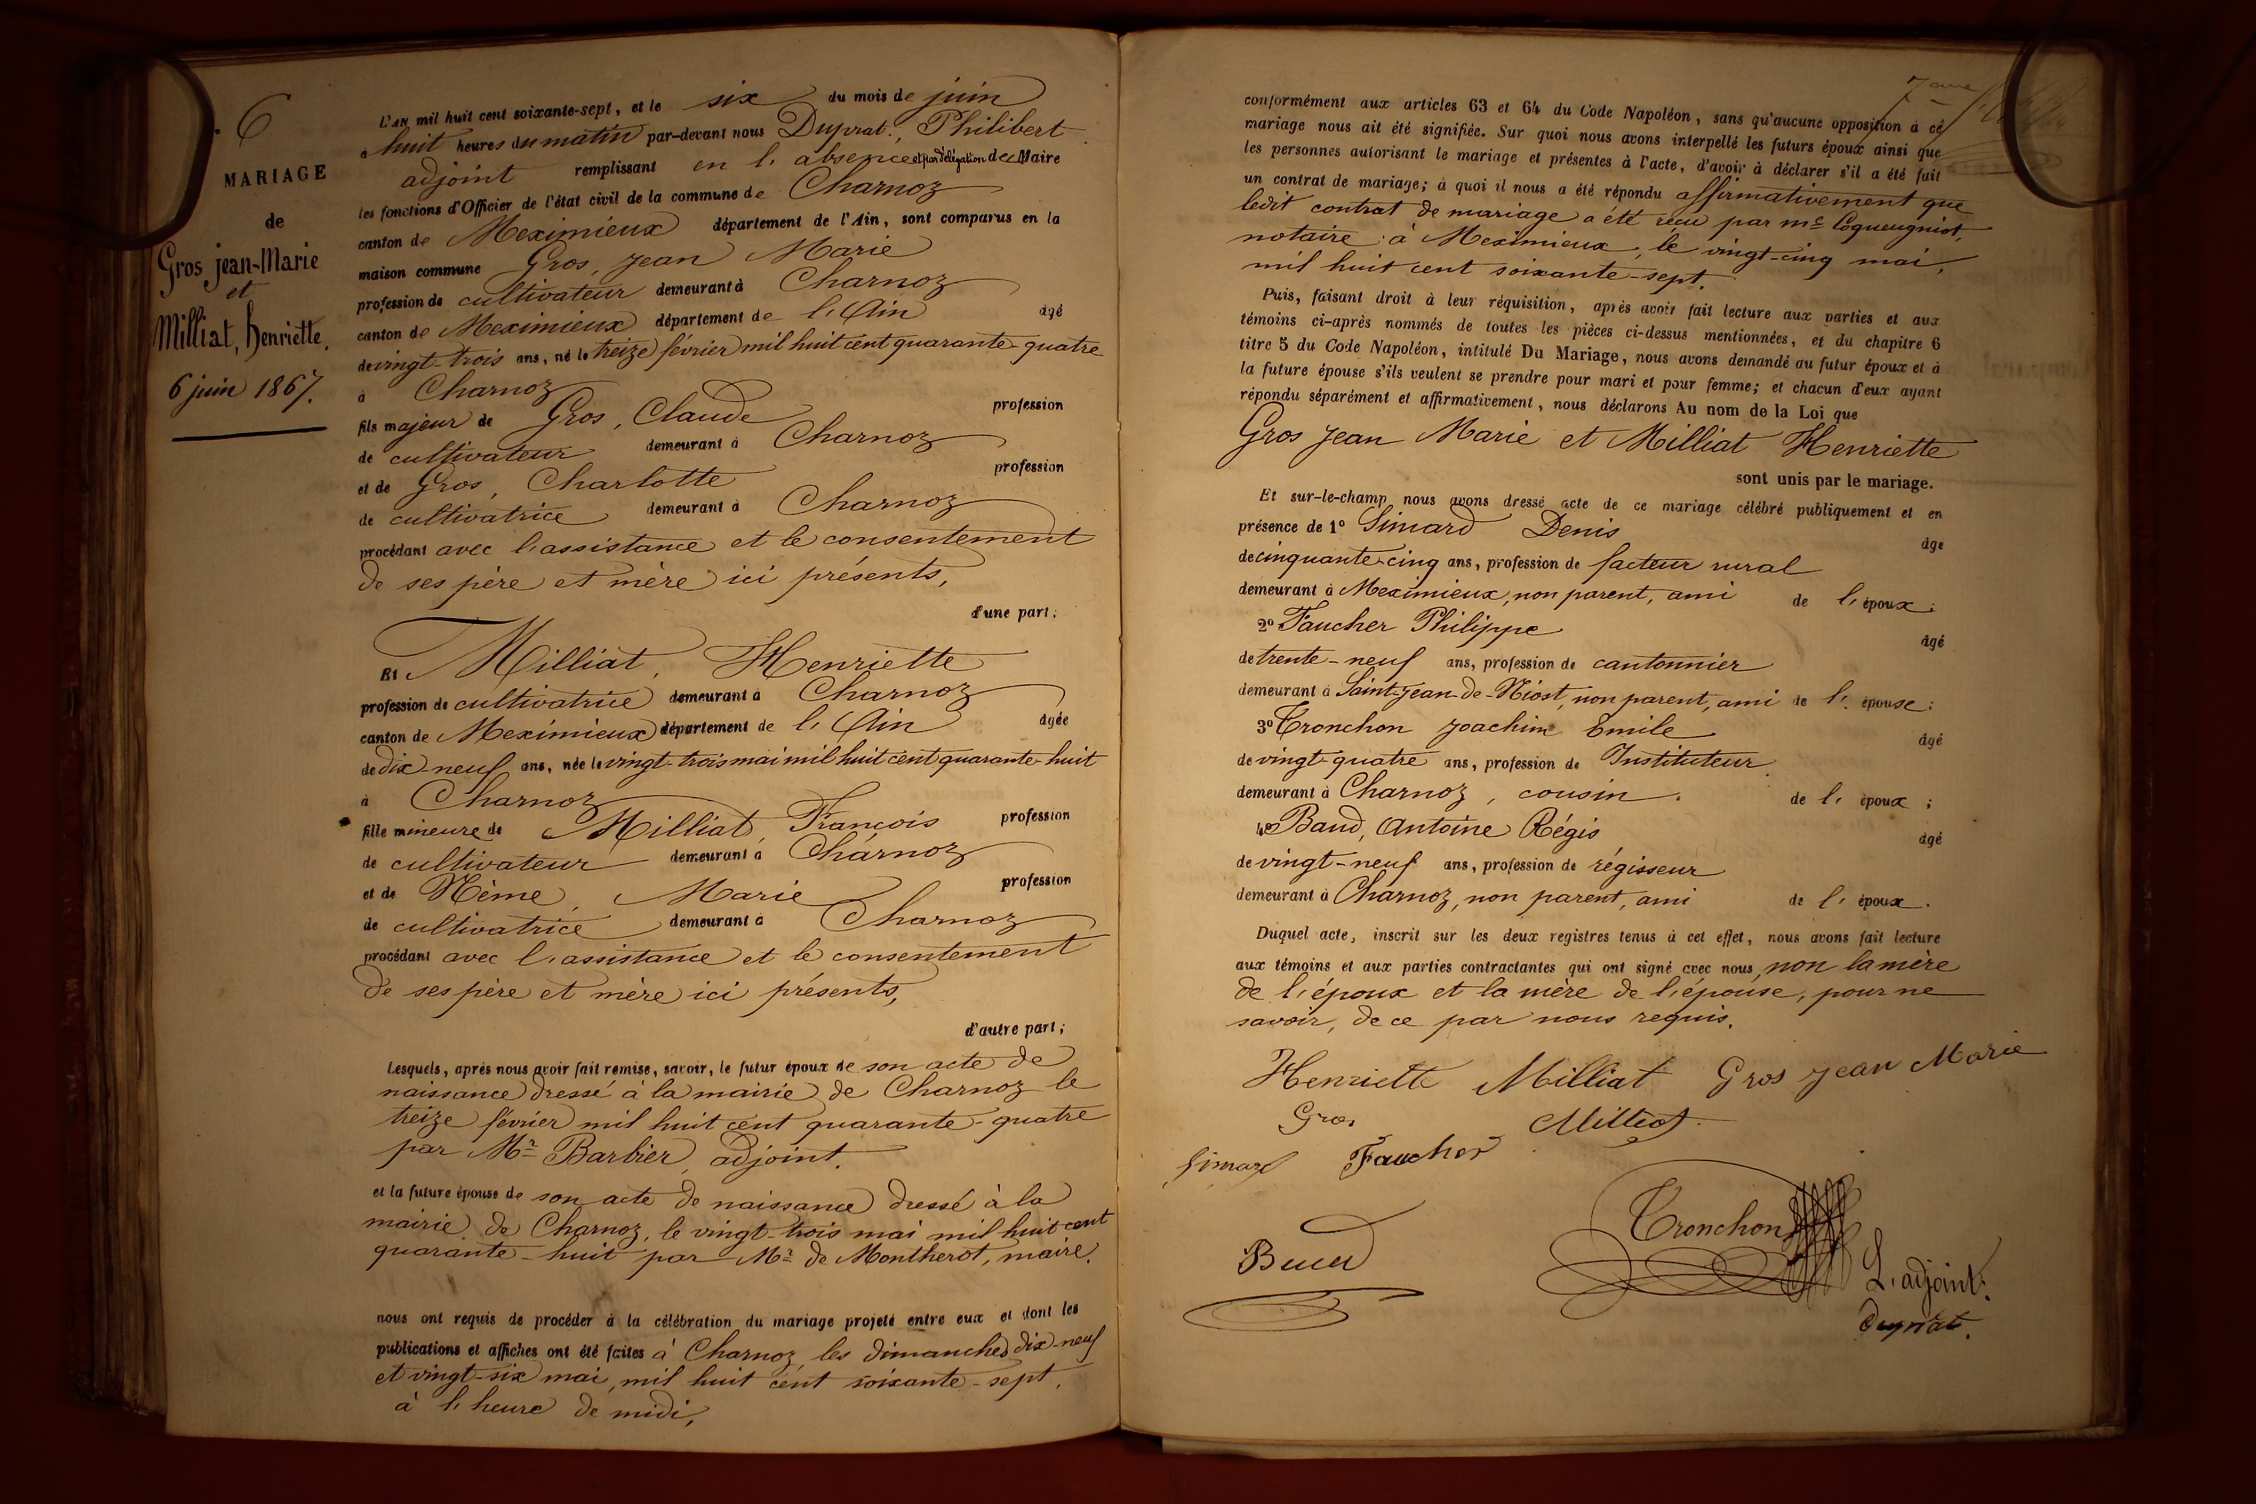 6
MARIAGE
de
Gros jean-Marie
et
Milliat, henriette.
6 juin 1867.
L'AN mil huit cent soixante-sept, et le six du mois de juin
à huit heures du matin par-devant nous Duprat, Philibert
adjoint remplissant en l'absence et par délégation de Maire
les fonctions d'Officier de l'état civil de la commune de Charnoz
canton de Meximieux département de l'Ain, sont comparus en la
maison commune Gros, Jean Marie
profession de cultivateur demeurant à Charnoz
canton de Meximieux département de l'Ain âgé
de vingt-trois ans, né le treize février mil huit cent quarante-quatre
à Charnoz
fils majeur de Gros, Claude profession
de cultivateur demeurant à Charnoz
et de Gros, Charlotte profession
de cultivatrice demeurant à Charnoz
procédant avec l'assistance et le consentement
de ses père et mère ici présents,
d'une part;
Et Milliat, Henriette
profession de cultivatrice demeurant à Charnoz
canton de Meximieux département de l'Ain âgée
de dix-neuf ans, née le vingt-trois mai mil huit cent quarante-huit
à Charnoz
fille mineure de Milliat, François profession
de cultivateur demeurant à Charnoz
et de Nême, Marie profession
de cultivatrice demeurant à Charnoz
procédant avec l'assistance et le consentement
de ses père et mère ici présents,
d'autre part;
Lesquels, après nous avoir fait remise, savoir, le futur époux de son acte de
naissance dressé à la mairie de Charnoz le
treize février mil huit cent quarante-quatre
par Mr Barbier, adjoint.
et la future épouse de son acte de naissance dressé à la
mairie de Charnoz, le vingt-trois mai mil huit cent
quarante-huit par Mr de Montherot, maire.
nous ont requis de procéder à la célébration du mariage projeté entre eux et dont les
publications et affiches ont été faites à Charnoz, les dimanches dix-neuf
et vingt-six mai, mil huit cent soixante-sept,
à l'heure de midi,
conformément aux articles 63 et 64 du Code Napoléon, sans qu'aucune opposition à ce
mariage nous ait été signifiée. Sur quoi nous avons interpellé les futurs époux ainsi que
les personnes autorisant le mariage et présentes à l'acte, d'avoir à déclarer s'il a été fait
un contrat de mariage; à quoi il nous a été répondu affirmativement que
ledit contrat de mariage a été reçu par me Coqueugniot,
notaire à Meximieux, le vingt-cinq mai,
mil huit cent soixante-sept.
Puis, faisant droit à leur réquisition, après avoir fait lecture aux parties et aux
témoins ci-après nommés de toutes les pièces ci-dessus mentionnées, et du chapitre 6
titre 5 du Code Napoléon, intitulé Du Mariage, nous avons demandé au futur époux et à
la future épouse s'ils veulent se prendre pour mari et pour femme; et chacun d'eux ayant
répondu séparément et affirmativement, nous déclarons Au nom de la Loi que
Gros Jean Marie et Milliat Henriette
sont unis par le mariage.
Et sur-le-champ nous avons dressé acte de ce mariage célébré publiquement et en
présence de 1° Simard Denis âgé
de cinquante-cinq ans, profession de facteur rural
demeurant à Meximieux, non parent, ami de l'époux;
2° Faucher Philippe âgé
de trente-neuf ans, profession de cantonnier
demeurant à Saint-Jean-de-Niost, non parent, ami de l'épouse;
3° Tronchon Joachim Emile âgé
de vingt-quatre ans, profession de Instituteur
demeurant à Charnoz, cousin de l'époux;
4° Baud, Antoine Régis âgé
de vingt-neuf ans, profession de régisseur
demeurant à Charnoz, non parent, ami de l'époux.
Duquel acte, inscrit sur les deux registres tenus à cet effet, nous avons fait lecture
aux témoins et aux parties contractantes qui ont signé avec nous, non la mère
de l'époux et la mère de l'épouse, pour ne
savoir, de ce par nous requis.
Henriette Milliat Gros jean Marie
Gros Milliat
Simard Faucher
Tronchon
Baud
L'adjoint:
Duprat.